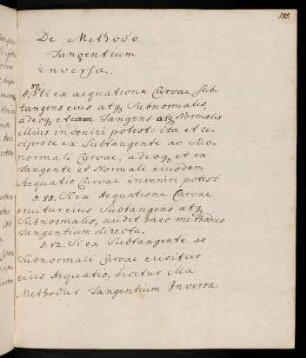 De Methodo
Tangentium
inversa.
Sicuti ex aequatione Curvae Sub-
tangens eius atq; Subnormalis,
adeoq; etiam Tangens atq; Normalis
illius inveniri potest: ita et re-
ciproce ex Subtangente ac
normali Curvae, adeoq; et ex
Tangente et Normali eiusdem
Aequatio Curvae inveniri potest.
Si ex Aequatione Curvae
eruitur eius Subtangens atq;
Subnormalis, audit haec methodus
Tangentium directa.
Si ex Subtangente ac
Subnormali Curvae eruitur
eius Aequatio, dicitur illa
Methodus Tangentium Inversa